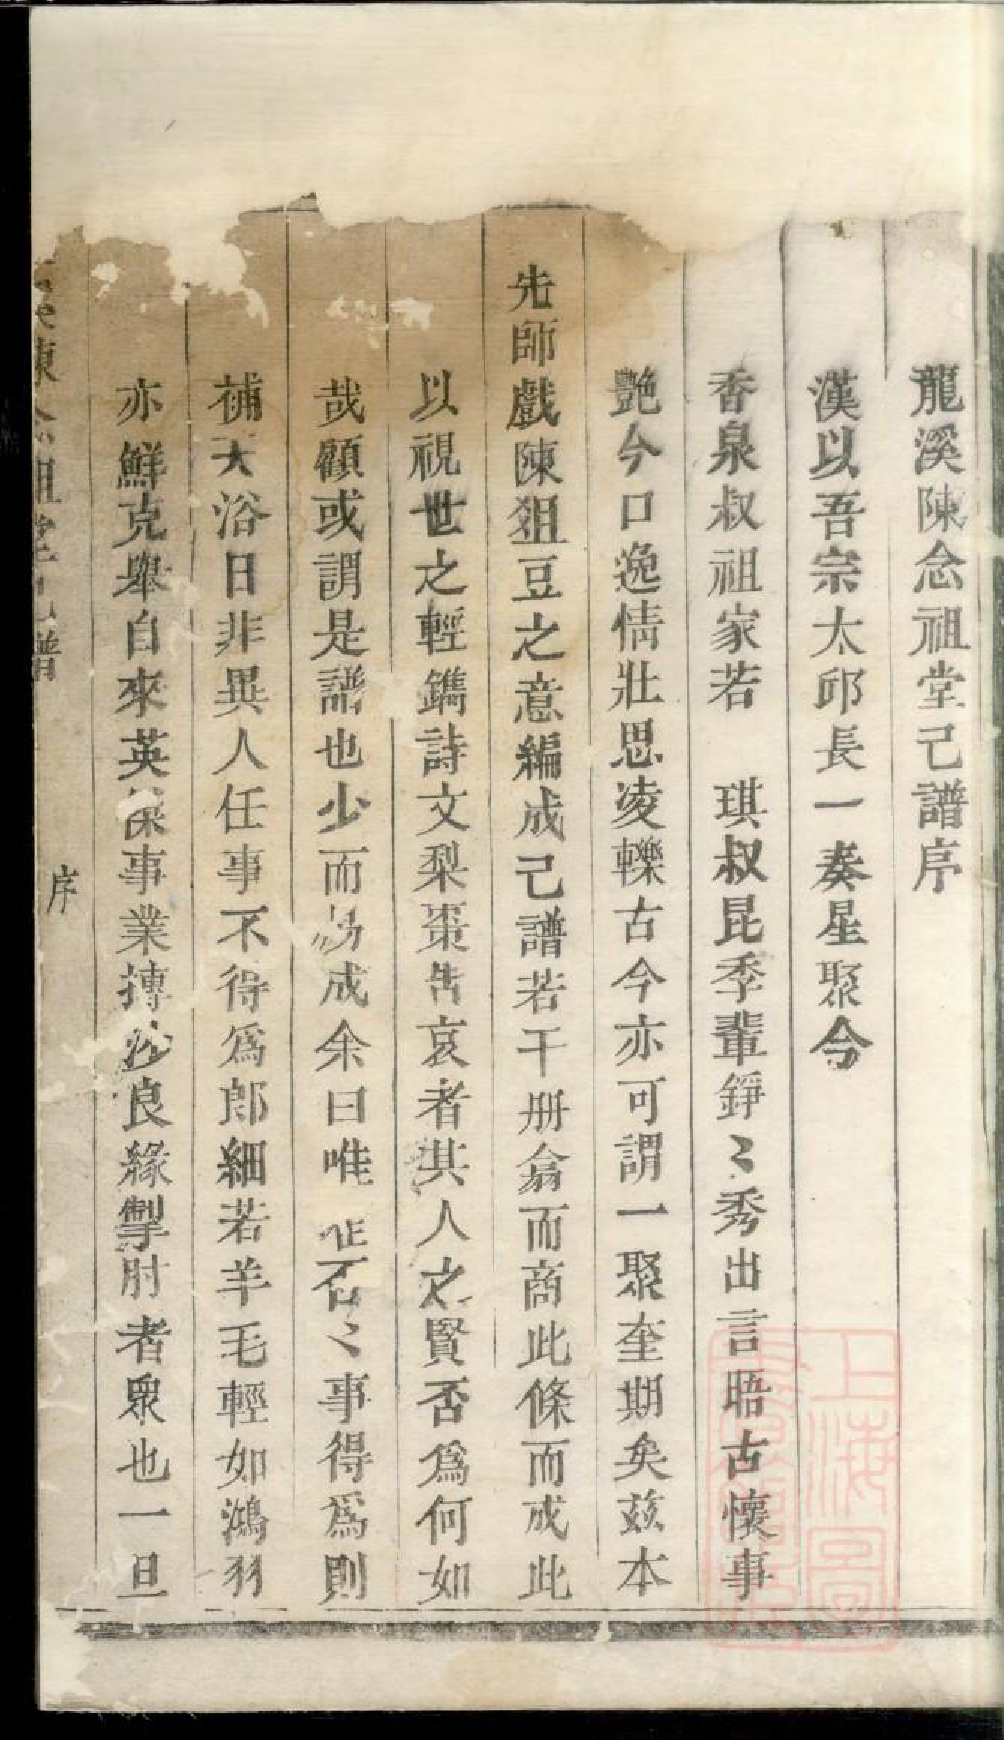 龍溪陳念祖堂己譜序
漢以吾宗太邱長一奏星聚今
香泉叔祖家若　琪叔昆季輩錚〻秀出言晤古懷事
艷今口逸情壯思凌轢古今亦可謂一聚奎期矣茲本
先師戲陳狙豆之意編成己譜若干册翕而商此條而成此
以視世之輕鐫詩文梨棗吿哀者其人之賢否為何如
哉顧或謂是譜也少而易成余曰唯　否〻事得為則
補天浴日非異人任事不得為郎細若羊毛輕如鴻羽
亦鮮克舉自來英傑事業摶沙良緣掣肘者衆也一旦
陳念祖堂己譜　序
上海圖書館藏